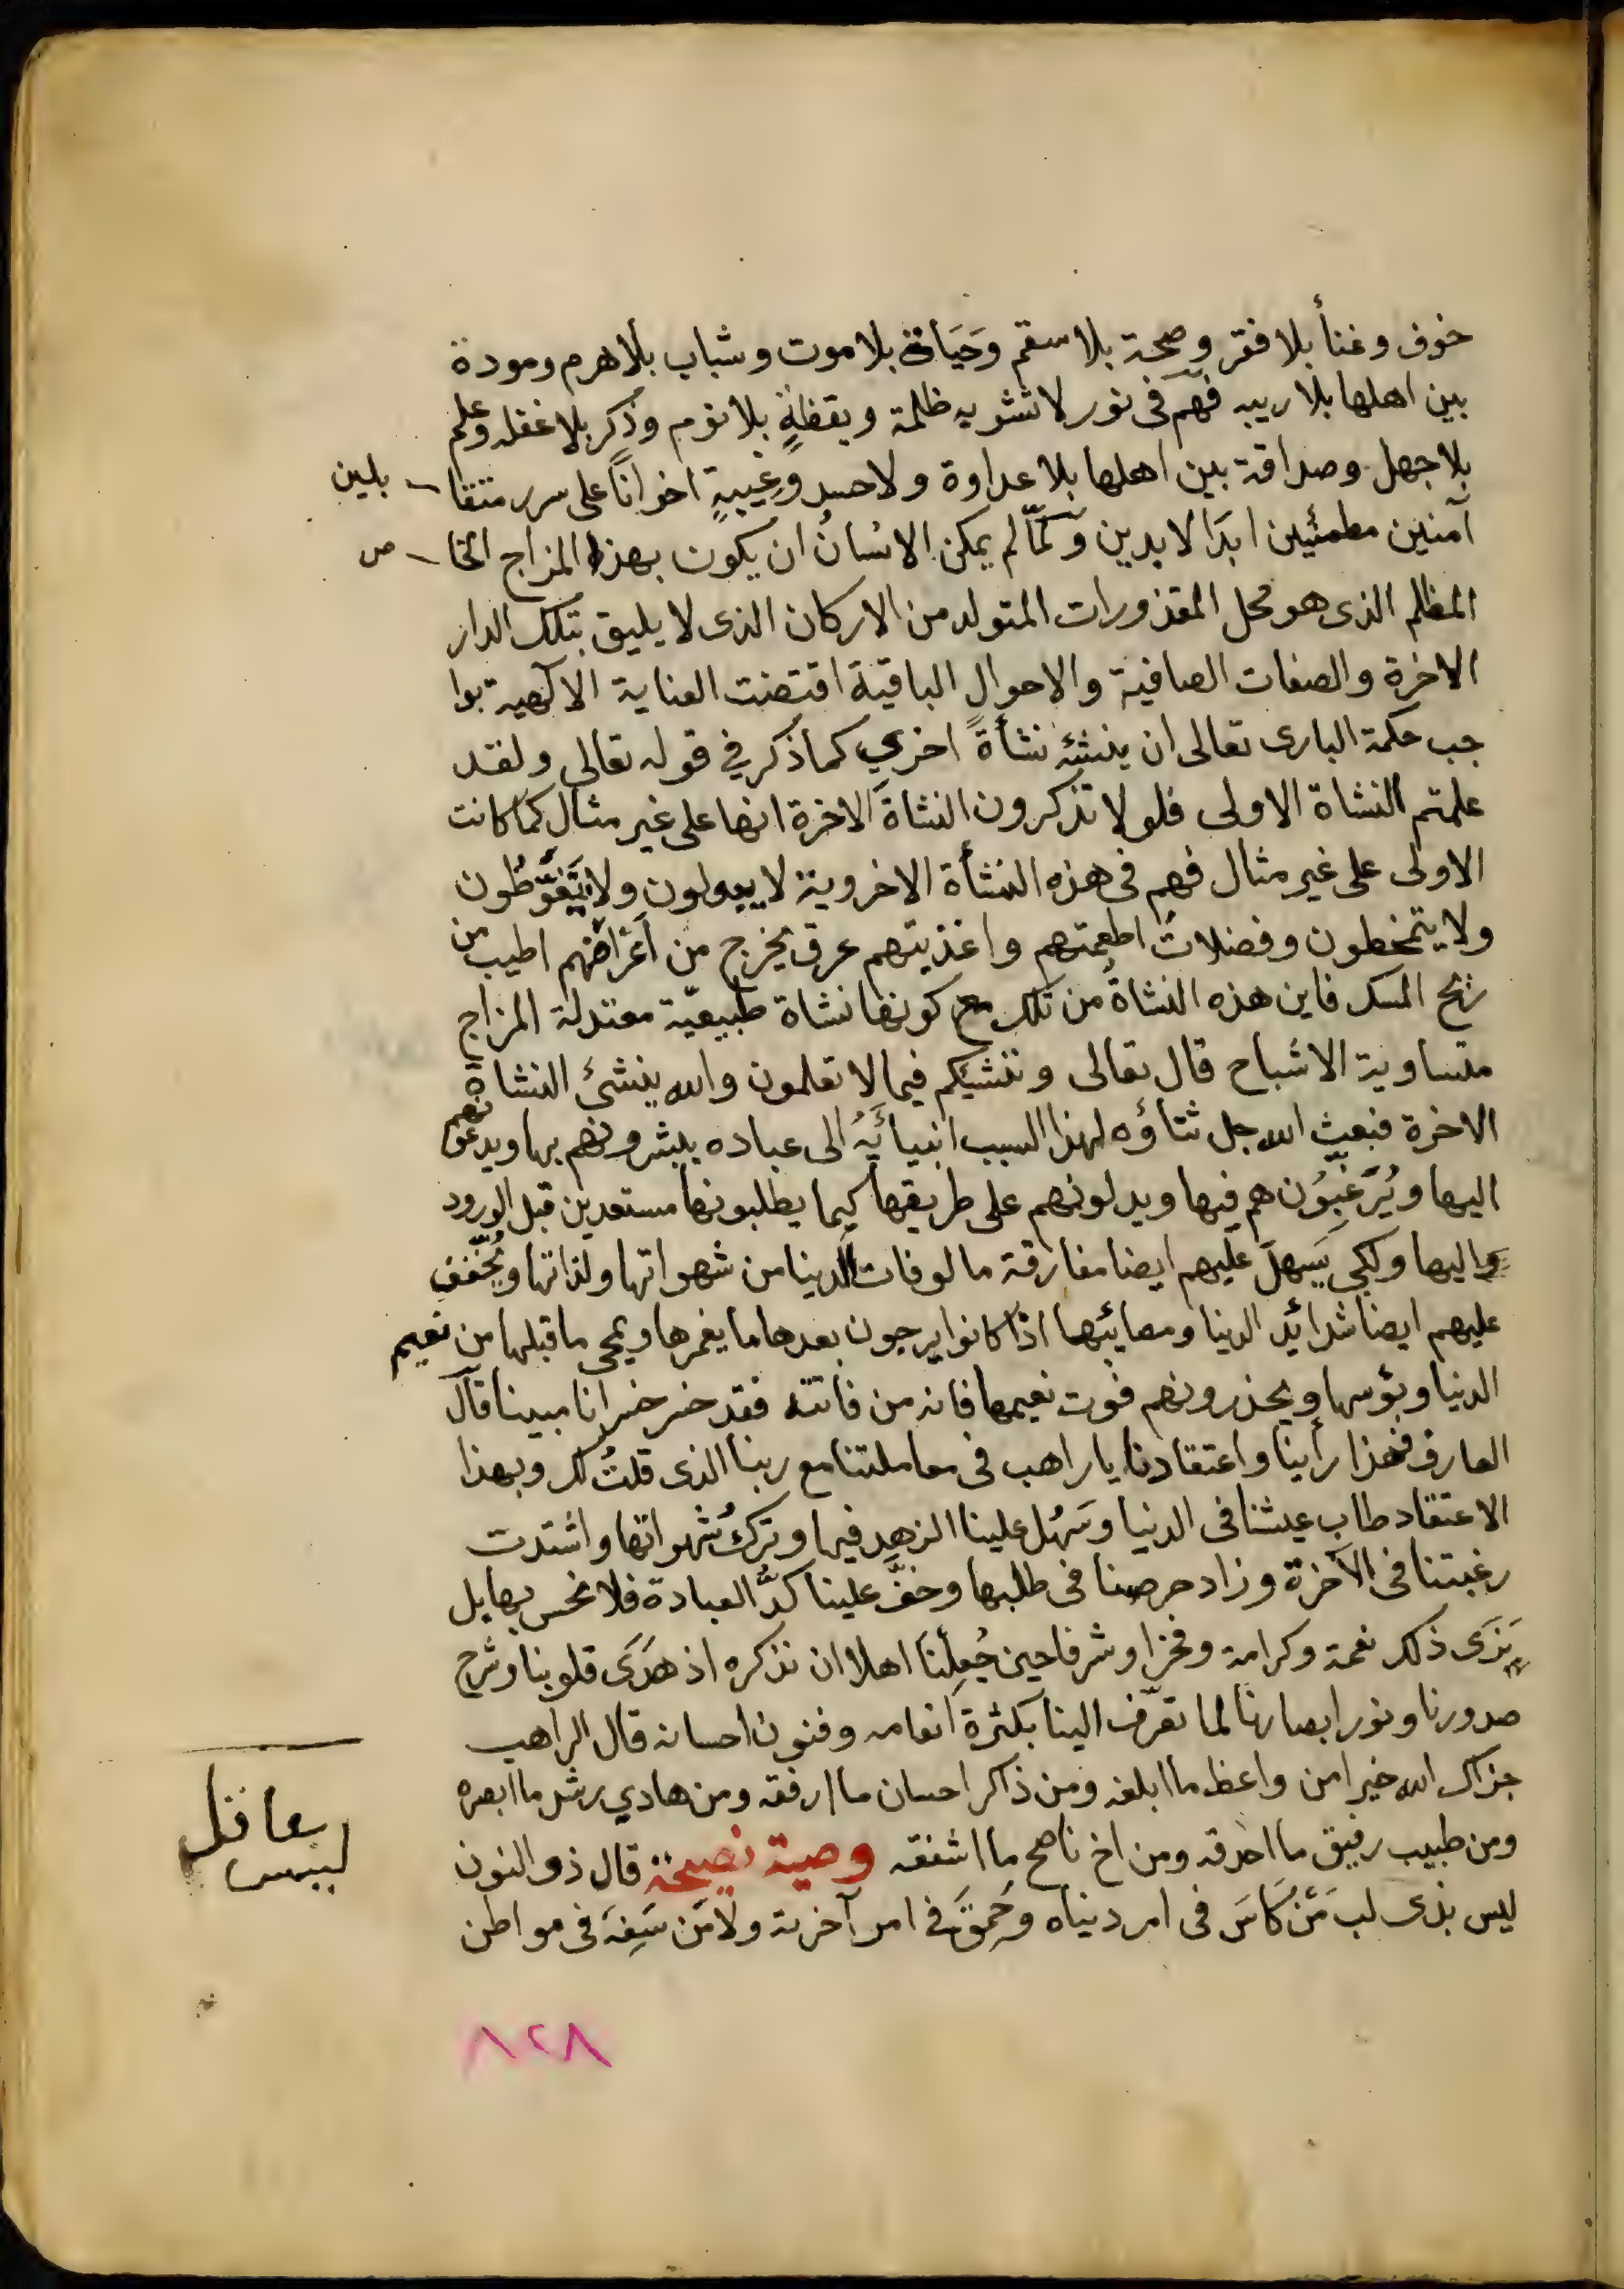 خوف وغنأ بلا فقر وصحة بلا سقم وَحَيَاة بلا موت وشباب بلا هرم ومودة
بين اهلها بلا ريبه فهم فى نور لا تشوبه ظلمة ويقظةٍ بلا نوم وذكر بلا غفله وعلم
بلا جهل وصداقة بين اهلها بلا عداوة ولا حسد وغِيبةٍ اخوانًا على سرر متقا بلين
آمنين مطمئين ابدَا لابدين وَلمّا لم يمكن الانسانُ ان يكون بهذا المزاج الخا ص
المظلم الذى هو محل المقذورات المتولد من الاركان الذى لا يليق بتلك الدار
الاخرة والصفات الصافية والاحوال الباقية اقتضت العناية الالهية بوا
جب حكمة البارى تعالى ان ينشئه نشأةً اخرى كما ذكر في قوله تعالى ولقد
علمتم النشاة الاولى فلولا تذكرون النشاةَ الاخرة انها على غير مثال كما كانت
الاولى على غير مثال فهم فى هذه النشأة الاخروية لا يبولون ولا يَتَغَوَّطُون
ولا يتمخطون وفضلاتُ اطعمتهم واغذيتهم عرق يخرج من اَعْراضهم اطيب من
ريح المسك فاين هذه النشاةُ من تلك مع كونها نشاة طبيعيّة معتدلة المزاج
متساوية الاشباح قال تعالى وننشئكم فيما لا تعلمون والله ينشئ النشاة
الاخرة فبعث الله جل ثناؤه لهذا السبب انبيائَهُ الى عباده يبشرونهم بها ويدعونهم
اليها ويُرَغِبُون هم فيها ويدلونهم على طريقها كيما يطلبونها مستعدين قبل الورود
واليها ولكى يَسهلَ عليهم ايضا مفارقة مالوفات الدينا من شهواتها ولذاتها ويُخَفف
عليهم ايضا شدائد الدينا ومصايئها اذا كانوا يرجون بعدها ما يغمرها ويمحى ما قبلها من نعيم
الدنيا وبؤسها ويحذرونهم فوت نعيمها فانه من فاتته فقد خسر خسرانا مبينا قال
العارف فهذا رأينا واعتقادنا يا راهب فى معاملتنا مع ربنا الذى قلتُ لك وبهذا
الاعتقاد طاب عيشنا فى الدنيا وسَهُل علينا الزهد فيها وتركُ شهواتها واشتدت
رغبتنا فى الآخرة وزاد حرصنا فى طلبها وخفَّ علينا كدُّ العبادة فلا نحس بها بل
نَرَى ذلك نعمة وكرامة وفخرا وشرفا حين جُعِلْنا اهلا ان نذكره اذ هَدَى قلوبنا وشرح
صدورنا ونور ابصارنا لما تعرّف الينا بكثرة انعامه وفنون احسانه قال الراهب
جزاك الله خيرا من واعظ ما ابلغه ومن ذاكر احسان ما ارفقه ومن هادي رشد ما ابصره
ومن طبيب رفيق ما احذقه ومن اخ ناصح ما اشفقه وصية نصيحة قال ذو النون
ليس بذى لب مَنْ كَاسَ فى امر ديناه وحَمِقَ فى امر آخرته ولا مَن سَفِهَ فى مواطن
٨٢٨